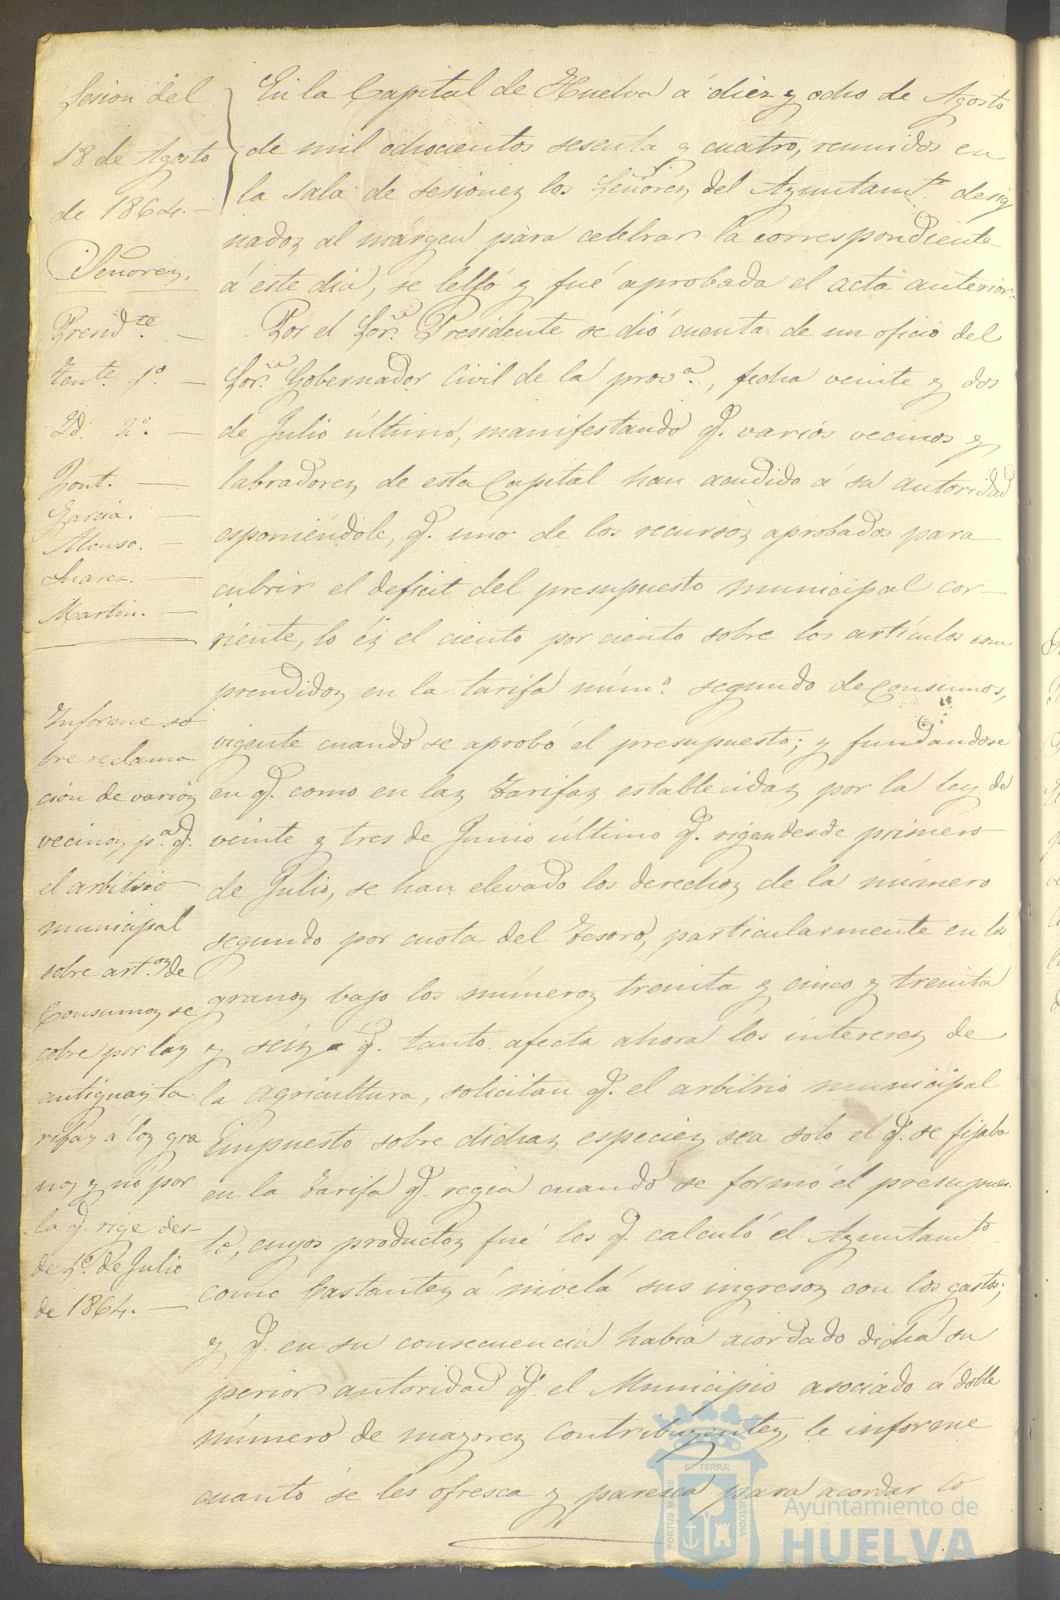 Sesion del
18 de Agosto
de 1864.
Señores,
Presid.te
Tent.e 1º
Id. 2º.
Garcia.
Alonso.
Suarez.
Martin.
Informe so
bre reclama
cion de varios
vecinos p.a q.
el arbitrio
municipal
sobre art.os de
Consumos, se
cobre por las
antiguas ta
rifas a los gra
nos y nó por
la q. rige des
de 1º. de Julio
de 1864.
En la Capital de Huelva a diez y ocho de Agosto
de mil ochocientos sesenta y cuatro, reunidos en
la sala de sesiones los Señores del Ayuntam.to desig
nados al márgen para celebrar la correspondiente
á este dia, se leyó y fué aprobada el acta anterior.
Por el Sor. Presidente se dió cuenta de un oficio del
Sor. Gobernador Civil de la prov.a, fecha veinte y dos
de Julio último, manifestando q. varios vecinos y
labradores de esta Capital han acudido á su autoridad
esponiéndole, q. uno de los recursos aprobados para
cubrir el deficit del presupuesto municipal cor-
riente, lo és el ciento por ciento sobre los artículos com
prendidos en la tarifa núm.º segundo de Consumos,
vigente cuando se aprobó el presupuesto; y fundandose
en q. como en las tarifas establecidas por la ley de
veinte y tres de Junio último q. rigen desde primero
de Julio, se han elevado los derechos de la número
segundo por cuota del Tesoro, particularmente en los
granos bajo los números treinta y cinco y treinta
y séis q. tanto afecta ahora los intereses de
la agricultura, solicitan q. el arbitrio municipal
impuesto sobre dichas especies sea solo el q. se fijaba
en la tarifa q. regia cuando se formó el presupues
to, cuyos productos fué los q. calculó el Ayuntam.to
como bastantes á nivelá sus ingresos con los gastos;
y q. en su consecuencia habia acordado dicha su
perior autoridad q. el Municipio asociado á doble
número de mayores contribuyentes, le informe
cuanto se les ofresca y paresca para acordar lo
PORTUS MARIS
ET TERRÆ
CUSTODIA
Ayuntamiento de
HUELVA